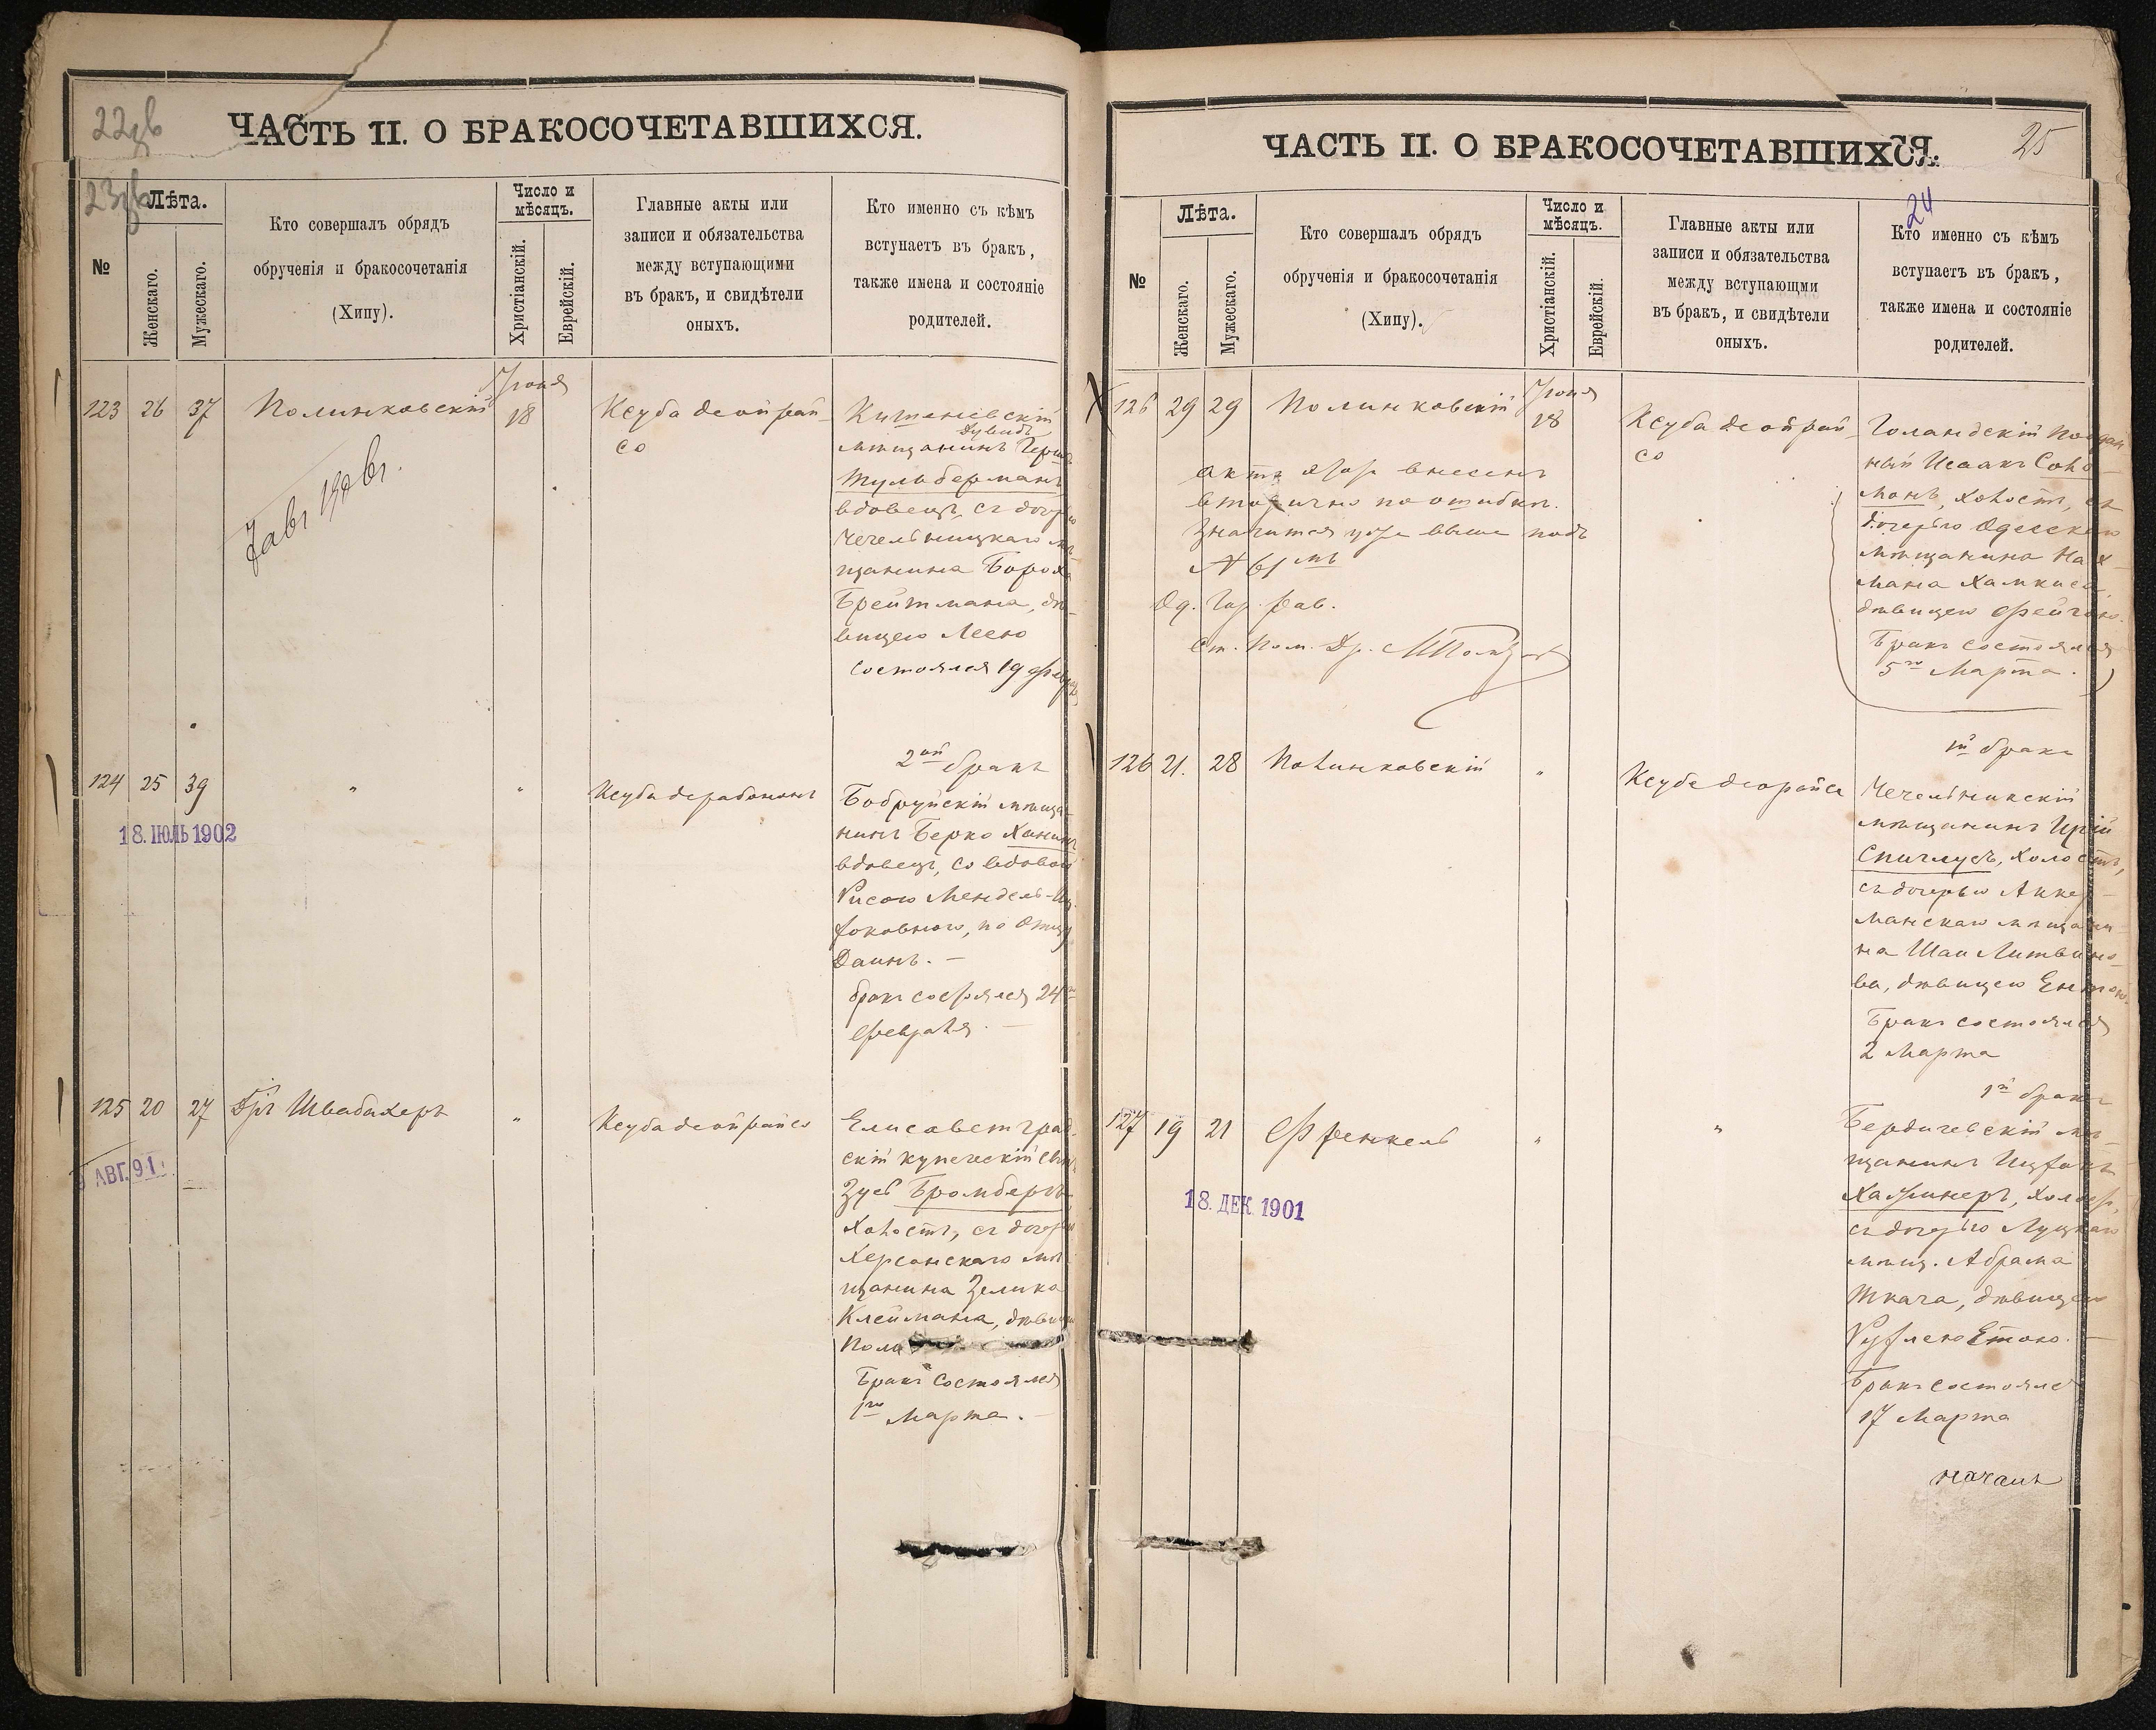 22
ЧАСТЬ II. О БРАКОСОЧЕТАВШИХСЯ.
23
№
Лѣта.
Женскаго.
Мужескаго.
Кто совершалъ обрядъ
обрученія и бракосочетанія
(Хипу).
Число и
мѣсяцъ.
Христіанскій.
Еврейскій.
Главные акты или
записи и обязательства
между вступающими
въ бракъ, и свидѣтели
оныхъ.
Кто именно съ кѣмъ
вступаетъ въ бракъ,
также имена и состояніе
родителей.
123 26 37 Полинковскій
Іюня
18
Ксуба деойрай-
со
Кишеневскій
Дувидъ
мѣщанинъ Герш
Тульберманъ
вдовецъ, съ дочерью
Чечельницкаго мѣ-
щанина Бороха
Брейтмана, дѣ-
вицею Леею
состоялся 19 Февр
124 25 39 " "
18. ІЮЛЬ 1902
Ксуба
2ой бракъ
Бобруйскій мѣща-
нинъ Берко Ханинъ
вдовецъ, со вдовой
Рисою Мендель-Иц-
ковною, по отцу
Даинъ. —
бракъ состоялся 24
Февраля. —
125 20 27 Дръ Швабахеръ "
9 АВГ. 91
Ксуба деойрайсо
Елисаветград-
скій купеческій сынъ
Зусь Бромбергъ
холостъ, съ дочерью
Херсонскаго мѣ-
щанина Зелика
Клеймана, дѣвицею
Пола
Бракъ состоялся
1го Марта. —
ЧАСТЬ II. О БРАКОСОЧЕТАВШИХСЯ.
25
24
№
Лѣта.
Женскаго.
Мужескаго.
Кто совершалъ обрядъ
обрученія и бракосочетанія
(Хипу).
Число и
мѣсяцъ.
Христіанскій.
Еврейскій.
Главные акты или
записи и обязательства
между вступающми
въ бракъ, и свидѣтели
оныхъ.
Кто именно съ кѣмъ
вступаетъ въ бракъ,
также имена и состояніе
родителей.
126 29 29 Полинковскій
Іюня
18
Ксуба деойрай-
со
актъ этотъ внесенъ
вторично по ошибкѣ.
Значится уже выше подъ
№ 61мъ
Од. Гор. Рав.
Ст. Пом. Др.
Голандскій поддан
ный Исаакъ Соло-
монъ, холостъ, съ
дочерью Одесскаго
мѣщанина Нах-
мана Хамкиса,
дѣвицею Фейгою.
Бракъ состоялся
5го Марта.
126 21. 28 Полинковскій "
Ксуба деорайсо
1й бракъ
Чечельникскій
мѣщанинъ
Спиглусъ, холостъ,
съ дочерью Аккер-
манскаго мѣщани-
на Шаи Литвино-
ва, дѣвицею Ентою.
Бракъ состоялся
2 Марта
127 19 21 Френкель " "
18. ДЕК. 1901
1й бракъ
Бердичевскій мѣ-
щанинъ Ицхокъ
холостъ,
съ дочерью Луцкаго
мѣщ. Абрама
Ткача, дѣвицею
Бракъ состоялся
17 Марта